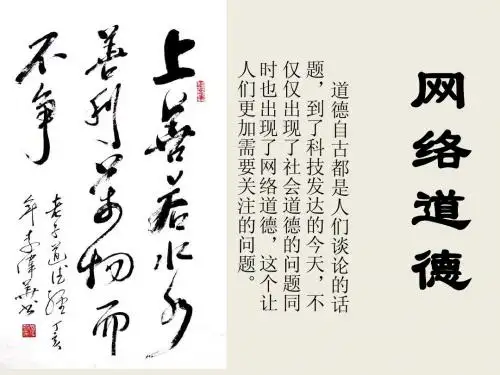 网络道德
道德自古都是人们谈论的话
题，到了科技发达的今天，不
仅仅出现了社会道德的问题同
时也出现了网络道德，这个让
人们更加需要关注的问题。
上善若水水
善利万物而
不争
老子道德经丁亥
年李